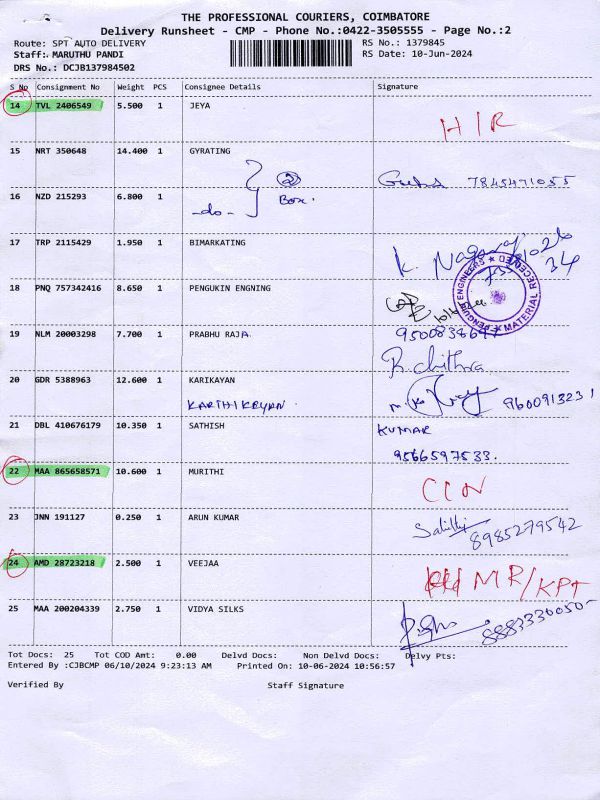 THE PROFESSIONAL COURIERS, COIMBATORE
Delivery Runsheet - CMP - Phone No.:0422-3505555 - Page No.:2
Route: SPT AUTO DELIVERY RS No.: 1379845
Staff: MARUTHU PANDI RS Date: 10-Jun-2024
DRS No.: DCJB137984502
S No Consignment No Weight PCS Consignee Details Signature
14 TVL 2406549 5.500 1 JEYA
H/R
15 NRT 350648 14.400 1 GYRATING
2 Box.
7845471055
16 NZD 215293 6.800 1
-do-
17 TRP 2115429 1.950 1 BIMARKATING
K. Nagaraj
34
18 PNQ 757342416 8.650 1 PENGUKIN ENGNING
PENGUIN ENGINEERS ★ MATERIAL RECEIVED ★
19 NLM 20003298 7.700 1 PRABHU RAJA
9500838647
R. chithra
20 GDR 5388963 12.600 1 KARIKAYAN
KARTHIKEYAN
9600913231
21 DBL 410676179 10.350 1 SATHISH
KUMAR
9566597533.
22 MAA 865658571 10.600 1 MURITHI
23 JNN 191127 0.250 1 ARUN KUMAR
8985279542
24 AMD 28723218 2.500 1 VEEJAA
MR/KPT
25 MAA 200204339 2.750 1 VIDYA SILKS
8883330050-
Tot Docs: 25 Tot COD Amt: 0.00 Delvd Docs: Non Delvd Docs: Delvy Pts:
Entered By :CJBCMP 06/10/2024 9:23:13 AM Printed On: 10-06-2024 10:56:57
Verified By Staff Signature